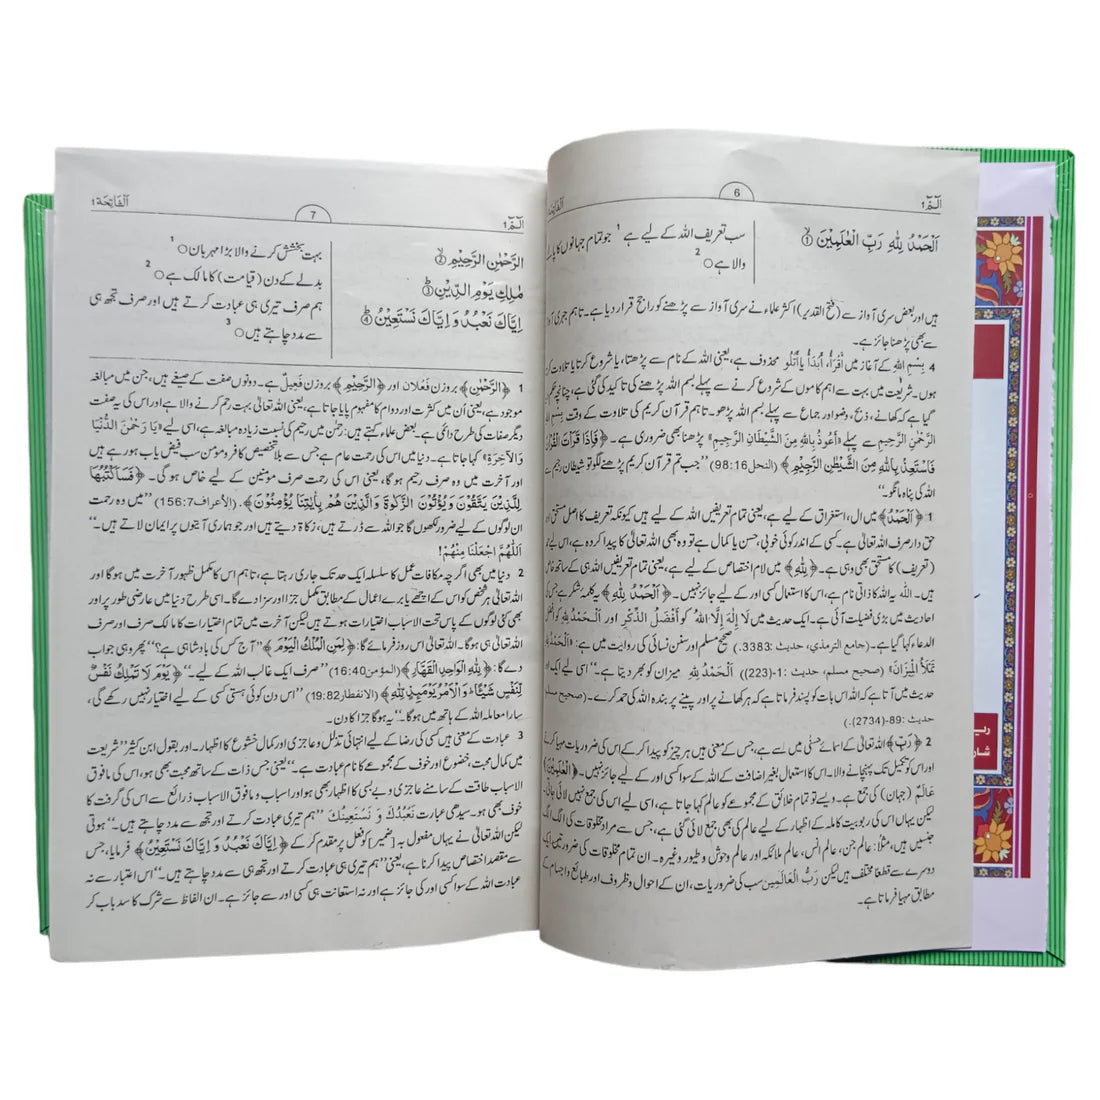 الٓـمّٓ 1
6
اَلْفَاتِحَة
اَلْحَمْدُ لِلّٰهِ رَبِّ الْعٰلَمِيْنَ ①
سب تعریف اللہ کے لیے ہے 1 جو تمام جہانوں کا
والا ہے ○ 2
ہیں اور بعض سری آواز سے (فتح القدیر) اکثر علماء نے سری آواز سے پڑھنے کو راجح قرار دیا ہے۔ تاہم جہری
سے بھی پڑھنا جائز ہے۔
4 بِسْمِ اللہِ کے آغاز میں اَقْرَأُ، اَبْدَأُ یا اَتْلُو محذوف ہے، یعنی اللہ کے نام سے پڑھتا، یا شروع کرتا یا تلاوت
ہوں۔ شریعت میں بہت سے اہم کاموں کے شروع کرنے سے پہلے بسم اللہ پڑھنے کی تاکید کی گئی ہے، چنانچہ
گیا ہے کہ کھانے، ذبح، وضو اور جماع سے پہلے بسم اللہ پڑھو۔ تاہم قرآن کریم کی تلاوت کے وقت بِسْمِ
الرَّحْمٰنِ الرَّحِيْمِ سے پہلے «اَعُوْذُ بِاللّٰهِ مِنَ الشَّيْطَانِ الرَّجِيْمِ» پڑھنا بھی ضروری ہے۔ ﴿فَاِذَا قَرَاْتَ الْقُرْاٰنَ
فَاسْتَعِذْ بِاللّٰهِ مِنَ الشَّيْطٰنِ الرَّجِيْمِ﴾ (النحل 98:16) ’’جب تم قرآن کریم پڑھنے لگو تو شیطان رجیم
اللہ کی پناہ مانگو۔‘‘
1 ﴿اَلْحَمْدُ﴾ میں ال، استغراق کے لیے ہے، یعنی تمام تعریفیں اللہ کے لیے ہیں کیونکہ تعریف کا اصل مستحق
حق دار صرف اللہ تعالیٰ ہے۔ کسی کے اندر کوئی خوبی، حسن یا کمال ہے تو وہ بھی اللہ تعالیٰ کا پیدا کردہ ہے، اس لیے
(تعریف) کا مستحق بھی وہی ہے۔ ﴿لِلّٰهِ﴾ میں لام اختصاص کے لیے ہے، یعنی تمام تعریفیں اللہ ہی کے ساتھ
ہیں۔ اللہ یہ اللہ کا ذاتی نام ہے، اس کا استعمال کسی اور کے لیے جائز نہیں۔ ﴿اَلْحَمْدُ لِلّٰهِ﴾ یہ کلمۂ شکر ہے جس
احادیث میں بڑی فضیلت آئی ہے۔ ایک حدیث میں لَا اِلٰهَ اِلَّا اللهُ کو اَفْضَلُ الذِّكْرِ اور اَلْحَمْدُ لِلّٰهِ
الدعاء کہا گیا ہے۔ (جامع الترمذي، حديث :3383) صحیح مسلم اور سنن نسائی کی روایت میں ہے: «اَلْحَمْدُ لِلّٰهِ
تَمْلَأُ الْمِيْزَانَ» (صحيح مسلم، حديث :1-(223)) اَلْحَمْدُ لِلّٰهِ میزان کو بھر دیتا ہے۔‘‘ اسی لیے ایک
حدیث میں آتا ہے کہ اللہ اس بات کو پسند فرماتا ہے کہ ہر کھانے پر اور پینے پر بندہ اللہ کی حمد کرے۔ (صحيح مسلم
حديث :89-(2734).)
2 ﴿رَبِّ﴾ اللہ تعالیٰ کے اسمائے حسنیٰ میں سے ہے، جس کے معنی ہیں ہر چیز کو پیدا کر کے اس کی ضروریات مہیا کرنے
اور اس کو تکمیل تک پہنچانے والا۔ اس کا استعمال بغیر اضافت کے اللہ کے سوا کسی اور کے لیے جائز نہیں۔ ﴿الْعٰلَمِيْنَ﴾
عَالَمٌ (جہان) کی جمع ہے۔ ویسے تو تمام خلائق کے مجموعے کو عالم کہا جاتا ہے، اسی لیے اس کی جمع نہیں لائی جاتی
لیکن یہاں اس کی ربوبیت کاملہ کے اظہار کے لیے عالم کی بھی جمع لائی گئی ہے، جس سے مراد مخلوقات کی الگ الگ
جنسیں ہیں، مثلاً: عالم جن، عالم انس، عالم ملائکہ اور عالم وحوش و طیور وغیرہ۔ ان تمام مخلوقات کی ضرورتیں ایک
دوسرے سے قطعاً مختلف ہیں لیکن رَبُّ الْعَالَمِیْن سب کی ضروریات، ان کے احوال و ظروف اور طبائع و اجسام کے
مطابق مہیا فرماتا ہے۔
الٓـمّٓ 1
7
اَلْفَاتِحَة 1
الرَّحْمٰنِ الرَّحِيْمِ ②
مٰلِكِ يَوْمِ الدِّيْنِ ③
اِيَّاكَ نَعْبُدُ وَ اِيَّاكَ نَسْتَعِيْنُ ④
بہت بخشش کرنے والا بڑا مہربان ○ 1
بدلے کے دن (قیامت) کا مالک ہے ○ 2
ہم صرف تیری ہی عبادت کرتے ہیں اور صرف تجھ ہی
سے مدد چاہتے ہیں ○ 3
1 ﴿الرَّحْمٰنِ﴾ بروزن فَعْلَان اور ﴿الرَّحِيْمِ﴾ بروزن فَعِيْلٌ ہے۔ دونوں صفت کے صیغے ہیں، جن میں مبالغہ
موجود ہے، یعنی اُن میں کثرت اور دوام کا مفہوم پایا جاتا ہے، یعنی اللہ تعالیٰ بہت رحم کرنے والا ہے اور اس کی یہ صفت
دیگر صفات کی طرح دائمی ہے۔ بعض علماء کہتے ہیں: رحمٰن میں رحیم کی نسبت زیادہ مبالغہ ہے، اسی لیے «يَا رَحْمٰنَ الدُّنْيَا
وَالْآخِرَةِ» کہا جاتا ہے۔ دنیا میں اس کی رحمت عام ہے جس سے بلا تخصیص کافر و مومن سب فیض یاب ہو رہے ہیں
اور آخرت میں وہ صرف رحیم ہوگا، یعنی اس کی رحمت صرف مؤمنین کے لیے خاص ہو گی۔ ﴿فَسَاَكْتُبُهَا
لِلَّذِيْنَ يَتَّقُوْنَ وَيُؤْتُوْنَ الزَّكٰوةَ وَالَّذِيْنَ هُمْ بِاٰيٰتِنَا يُؤْمِنُوْنَ﴾. (الأعراف 156:7) ’’میں وہ رحمت
ان لوگوں کے لیے ضرور لکھوں گا جو اللہ سے ڈرتے ہیں، زکاۃ دیتے ہیں اور جو ہماری آیتوں پر ایمان لاتے ہیں۔‘‘
اَللّٰهُمَّ اجْعَلْنَا مِنْهُمْ!
2 دنیا میں بھی اگرچہ مکافات عمل کا سلسلہ ایک حد تک جاری رہتا ہے، تاہم اس کا مکمل ظہور آخرت میں ہوگا اور
اللہ تعالیٰ ہر شخص کو اس کے اچھے یا برے اعمال کے مطابق مکمل جزا اور سزا دے گا۔ اسی طرح دنیا میں عارضی طور پر اور
بھی کئی لوگوں کے پاس تحت الاسباب اختیارات ہوتے ہیں لیکن آخرت میں تمام اختیارات کا مالک صرف اور صرف
اللہ تعالیٰ ہی ہو گا۔ اللہ تعالیٰ اس روز فرمائے گا: ﴿لِمَنِ الْمُلْكُ الْيَوْمَ﴾ ’’آج کس کی بادشاہی ہے؟‘‘ پھر وہی جواب
دے گا: ﴿لِلّٰهِ الْوَاحِدِ الْقَهَّارِ﴾ (المؤمن 16:40) ’’صرف ایک غالب اللہ کے لیے۔‘‘ ﴿يَوْمَ لَا تَمْلِكُ نَفْسٌ
لِّنَفْسٍ شَيْئًا وَالْاَمْرُ يَوْمَئِذٍ لِّلّٰهِ﴾ (الانفطار 19:82) ’’اس دن کوئی ہستی کسی کے لیے اختیار نہیں رکھے گی،
سارا معاملہ اللہ کے ہاتھ میں ہوگا۔‘‘ یہ ہوگا جزا کا دن۔
3 عبادت کے معنی ہیں کسی کی رضا کے لیے انتہائی تذلل و عاجزی اور کمال خشوع کا اظہار۔ اور بقول ابن کثیرؒ ’’شریعت
میں کمال محبت، خضوع اور خوف کے مجموعے کا نام عبادت ہے۔‘‘ یعنی جس ذات کے ساتھ محبت بھی ہو، اس کی مافوق
الاسباب طاقت کے سامنے عاجزی و بے بسی کا اظہار بھی ہو اور اسباب و مافوق الاسباب ذرائع سے اس کی گرفت کا
خوف بھی ہو۔ سیدھی عبارت نَعْبُدُكَ وَ نَسْتَعِيْنُكَ ’’ہم تیری عبادت کرتے اور تجھ سے مدد چاہتے ہیں۔‘‘ ہوتی
لیکن اللہ تعالیٰ نے یہاں مفعول بہ [ضمیر] کو فعل پر مقدم کر کے ﴿اِيَّاكَ نَعْبُدُ وَ اِيَّاكَ نَسْتَعِيْنُ﴾ فرمایا، جس
سے مقصد اختصاص پیدا کرنا ہے، یعنی ’’ہم تیری ہی عبادت کرتے اور تجھ ہی سے مدد چاہتے ہیں۔‘‘ اس اعتبار سے نہ
عبادت اللہ کے سوا کسی اور کی جائز ہے اور نہ استعانت ہی کسی اور سے جائز ہے۔ ان الفاظ سے شرک کا سدباب کر